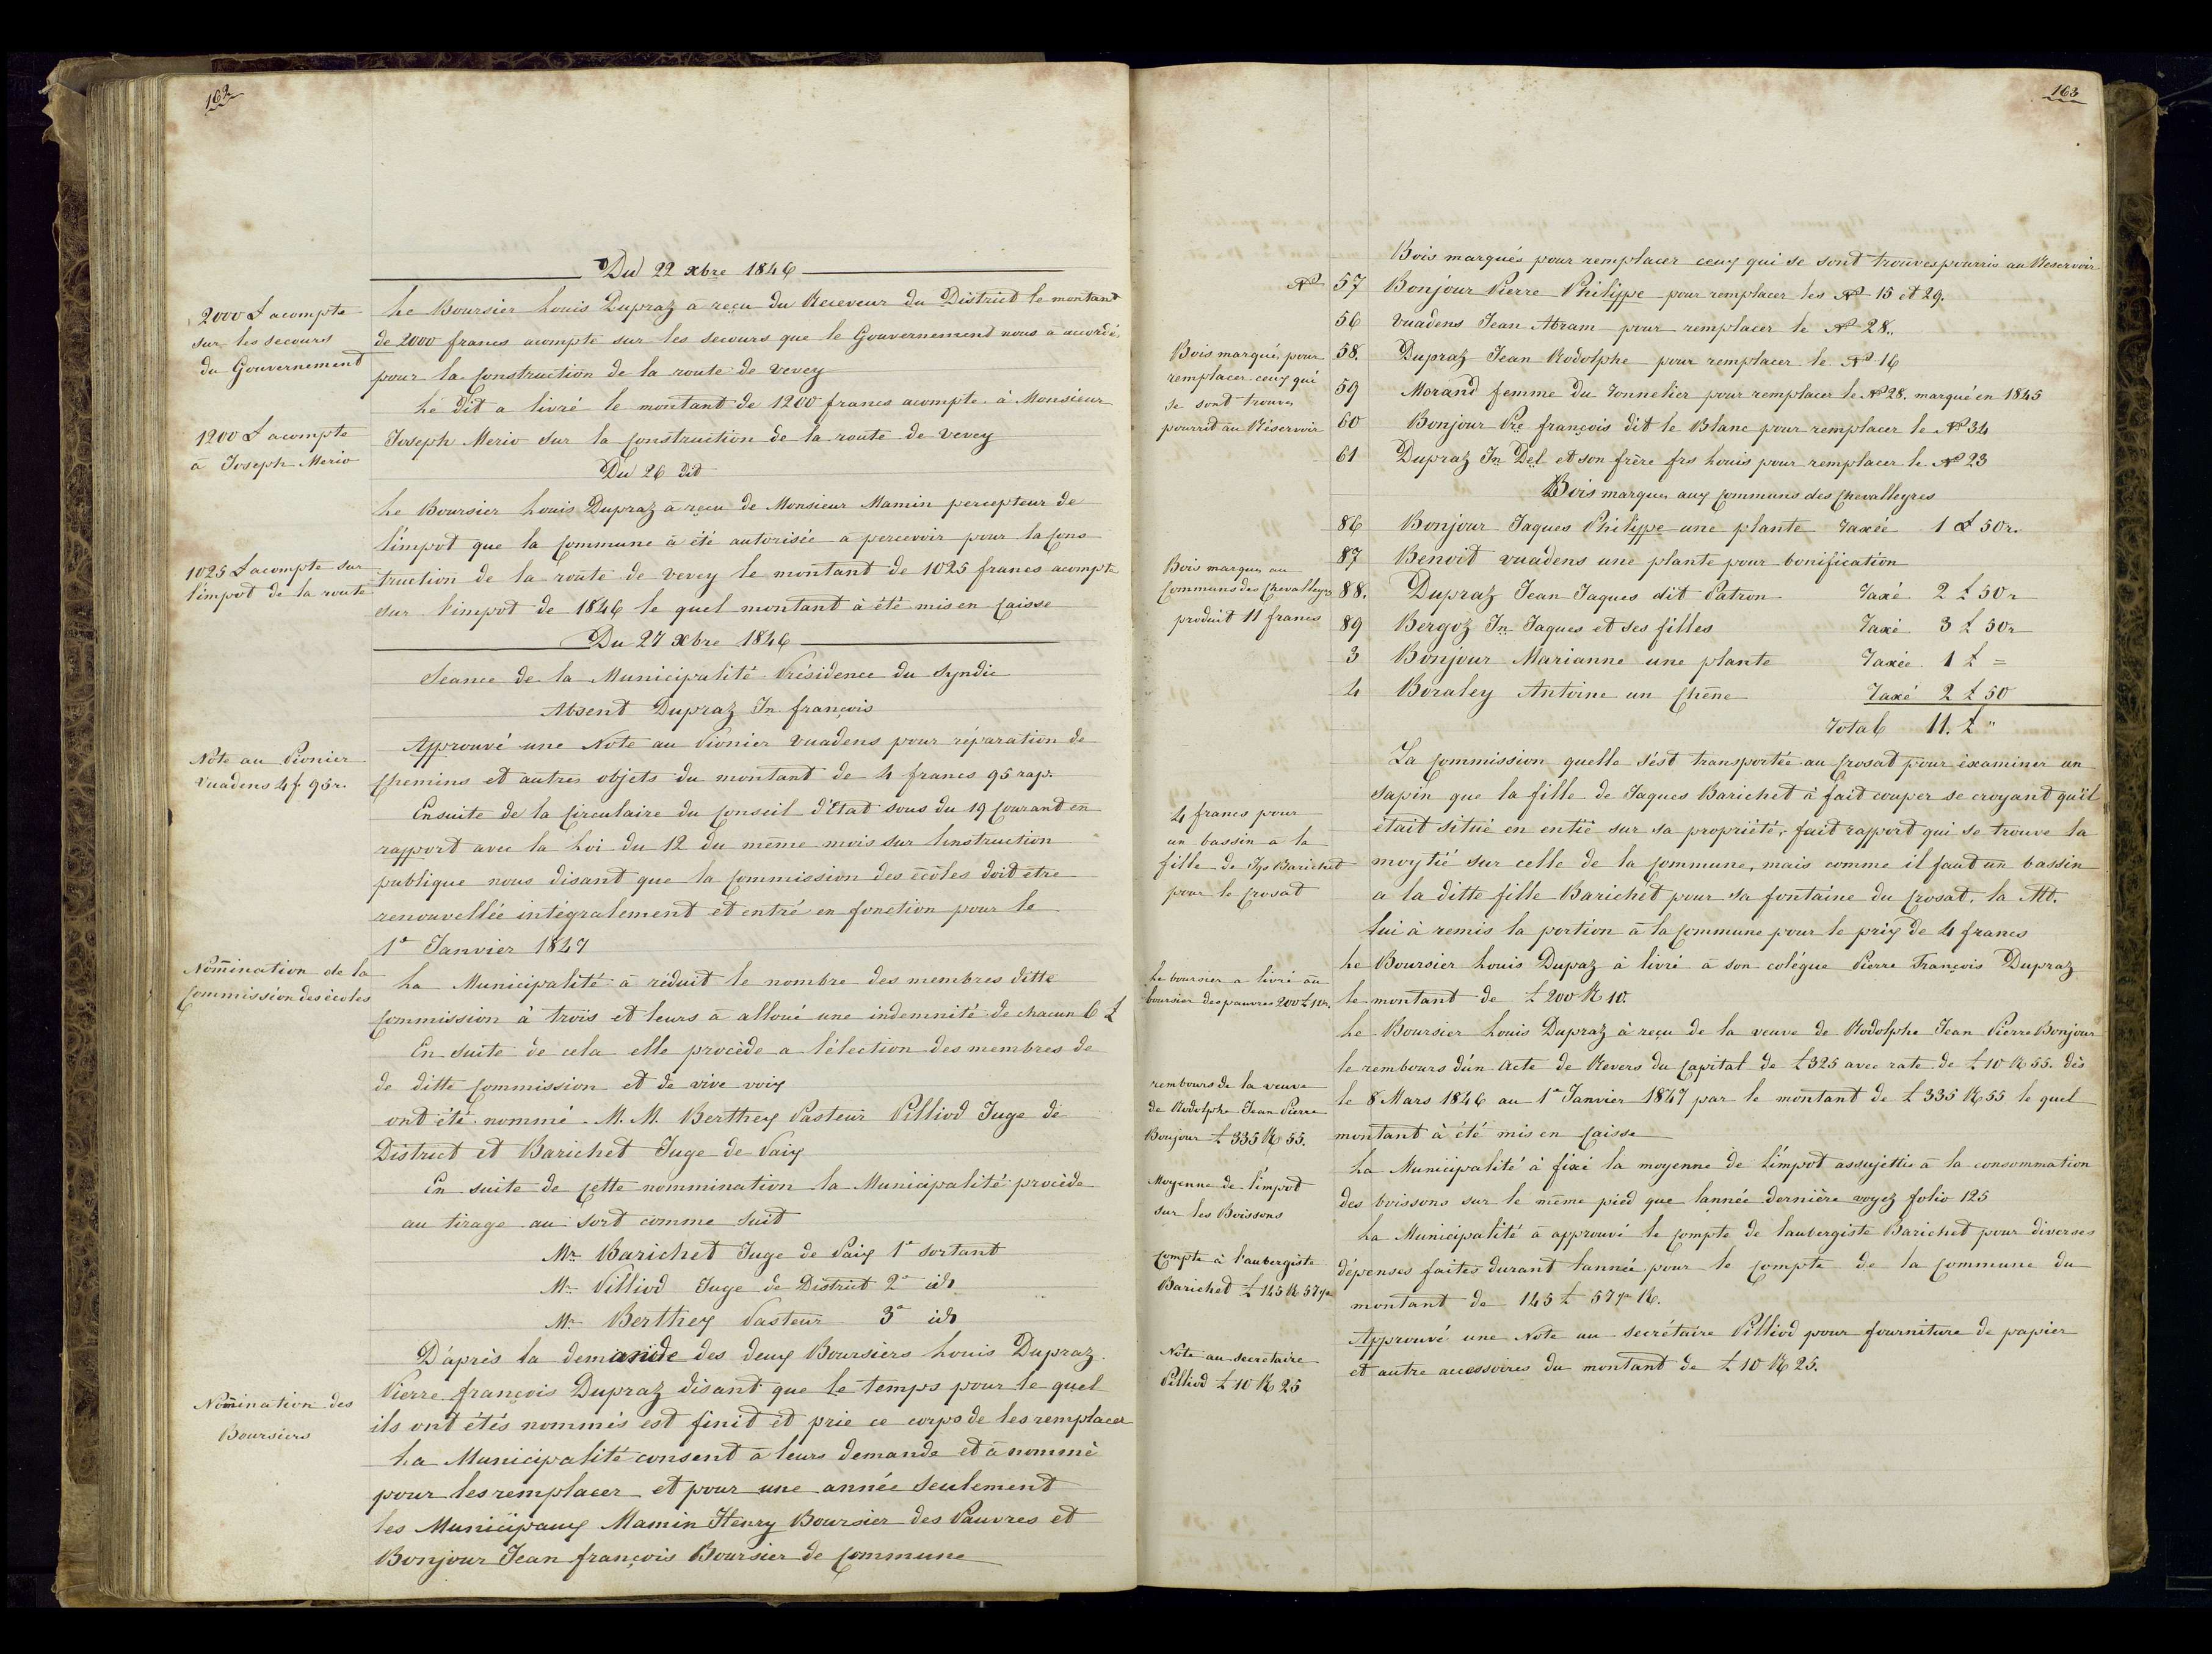 162
Du 22 xbre 1846
2000 £ acompte
sur les secours
du Gouvernement
Le Boursier Louis Dupraz a reçu du Receveur du District le montant
de 2000 francs acompte sur les secours que le Gouvernement nous a accordé
pour la Construction de la route de Vevey
1200 £ acompte
à Joseph Merio
Le dit a livré le montant de 1200 francs acompte à Monsieur
Joseph Merio sur la Construction de la route de Vevey
Du 26 dit
1025 £ acompte sur
l'impot de la route
Le Boursier Louis Dupraz a reçu de Monsieur Mamin percepteur de
l'impot que la Commune à été autorisée a percevoir pour la Cons
truction de la route de Vevey le montant de 1025 francs acompte
sur l'impot de 1846 le quel montant à été mis en Caisse
Du 27 xbre 1846
Seance de la Municipalité Présidence du Syndic
Absent Dupraz Jn. françois
Note au Pionier
Vuadens 4 f 95 r.
Approuvé une Note au Pionier Vuadens pour réparation de
Chemins et autres objets du montant de 4 francs 95 rap.
Ensuite de la Circulaire du Conseil d'Etat sous du 19 Courant en
rapport avec la Loi du 12 du même mois sur linstruction
publique nous disant que la Commission des écoles doit etre
renouvellée intégralement et entré en fonction pour le
1er Janvier 1847
Nomination de la
Commission des écoles
La Municipalité à réduit le nombre des membres ditte
Commission à trois et leurs à alloué une indemnité de chacun 6 £
En suite de cela elle procède a l'élection des membres de
de ditte Commission et de vive voix
ont été nommé M. M. Berthey Pasteur Pilliod Juge de
District et Barichet Juge de Paix
En suite de Cette nommination la Municipalité procède
au tirage au sort comme suit
Mr. Barichet Juge de Paix 1er sortant
Mr. Pilliod Juge de District 2e id
Mr. Berthey Pasteur 3e id
Nomination des
Boursiers
D'après la demande des deux Boursiers Louis Dupraz
Pierre françois Dupraz disant que le temps pour le quel
ils ont étés nommés est finit et prie ce corps de les remplacer
La Municipalité consent à leurs demande et à nommé
pour les remplacer et pour une année seulement
les Municipaux Mamin Henry Boursier des Pauvres et
Bonjour Jean françois Boursier de Commune
163
Bois marqués pour remplacer ceux qui se sont trouves pourris au Reservoir
No 57 Bonjour Pierre Philippe pour remplacer les No 15 et 29.
56 Vuadens Jean Abram pour remplacer le No 28.
Bois marqué, pour
remplacer ceux qui
se sont trouves
pourrid au Réservoir
58. Dupraz Jean Rodolphe pour remplacer le No 16
59 Morand femme du Tonnelier pour remplacer le No 28. marqué en 1845
60 Bonjour Pre françois dit le Blanc pour remplacer le No 34
61 Dupraz Jn Del et son frère frs Louis pour remplacer le No 23
Bois marques aux Communs des Chevalleyres
86 Bonjour Jaques Philippe une plante Taxée 1 £ 50 r.
87 Benoit Vuadens une plante pour bonification
Bois marques au
Communs des Chevalleyres
produit 11 francs
88. Dupraz Jean Jaques dit Patron Taxé 2 £ 50 r
89 Bergoz Jn Jaques et ses filles Taxé 3 £ 50 r
3 Bonjour Marianne une plante Taxée 1 £ =
4 Boraley Antoine un Chêne Taxé 2 £ 50
Total 11. £ "
4 francs pour
un bassin a la
fille de Jqs Barichet
pour le Crosat
La Commission quelle s'ést transportée au Crosat pour éxaminer un
Sapin que la fille de Jaques Barichet à fait couper se croyant qu'il
était situé en entié sur sa propriété, fait rapport qui se trouve la
moytié sur celle de la Commune, mais comme il faut un bassin
a la ditte fille Barichet pour sa fontaine du Crosat. la Mté.
lui à remis la portion à la Commune pour le prix de 4 francs
Le boursier a livré au
boursier des pauvres 200 £ 10 r.
Le Boursier Louis Dupaz à livré à son colégue Pierre François Dupraz
le montant de £ 200 R 10.
rembours de la veuve
de Rodolphe Jean Pierre
Bonjour £ 335 R 55.
Le Boursier Louis Dupraz à reçu de la veuve de Rodolphe Jean Pierre Bonjour
le rembours d'un Acte de Revers du Capital de £ 325 avec rate de £ 10 R 55. dès
le 8 Mars 1846 au 1er Janvier 1847 par le montant de £ 335 R 55 le quel
montant à été mis en Caisse
Moyenne de l'impot
sur les Boissons
La Municipalité à fixé la moyenne de l'impot assujettie à la consommation
des boissons sur le même pied que lannée dernière voyez folio 125
Compte à l'aubergiste
Barichet £ 145 R 57 1/2
La Municipalité à approuvé le Compte de laubergiste Barichet pour diverses
dépenses faites durant lannée pour le Compte de la Commune du
montant de 145 £ 57 1/2 R.
Note au secrétaire
Pilliod £ 10 R 25
Approuvé une Note au secrétaire Pilliod pour fourniture de papier
et autre accessoires du montant de £ 10 R 25.